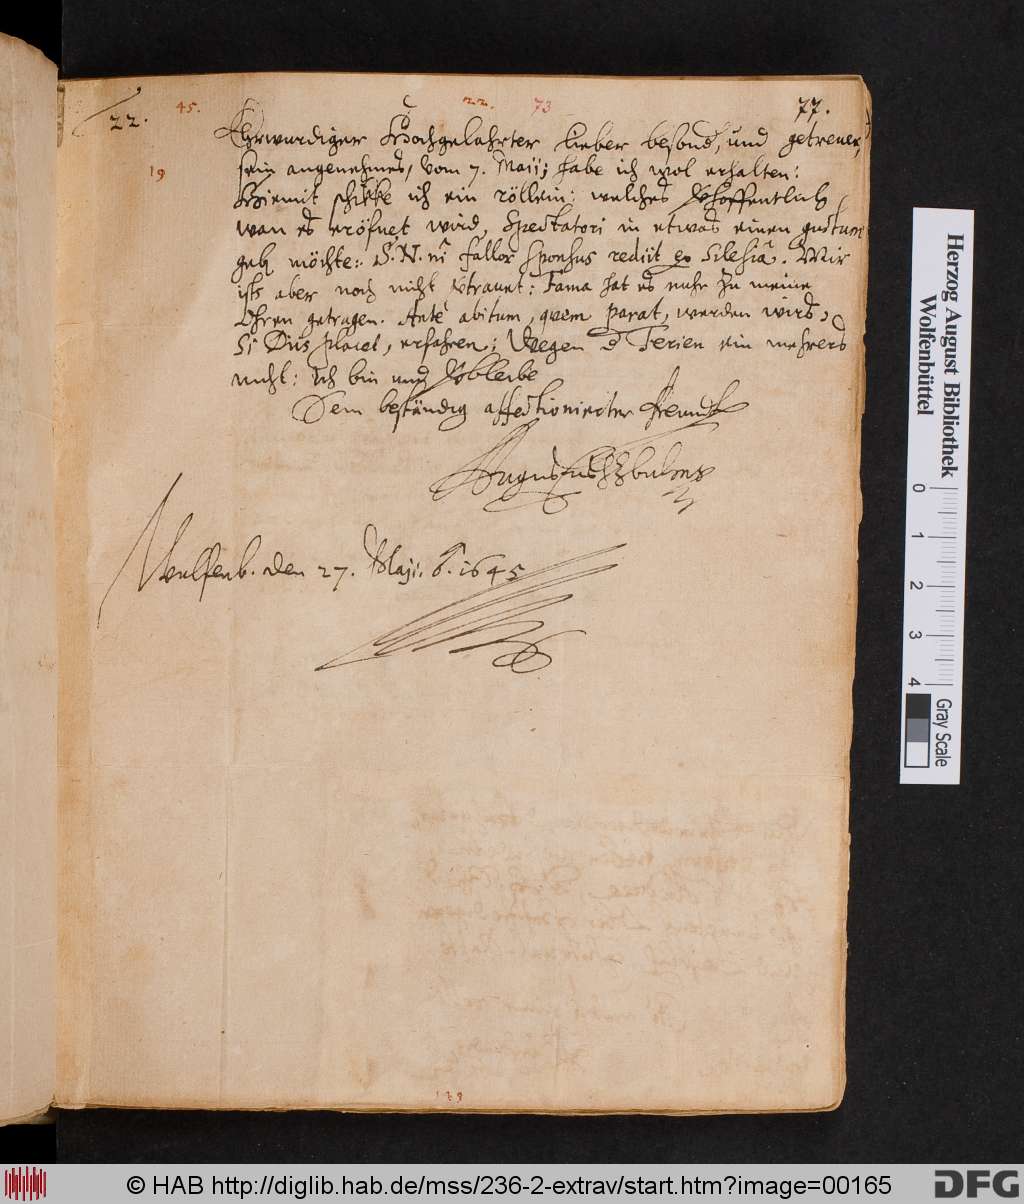 22.
45.
22.
73
77.
19
Ehrwurdiger Hochgelahrter lieber besond, und getrewer,
sein angenehmes, vom 7. Maij; habe ich wol erhalten:
Hiemit schikke ich ein röllein: welches vhoffentlich
wan es eröfnet wird, Spectatori in etwas einen gustum
geb möchte: S. N. ni fallor sponsus rediit ex Silesiâ. Mir
ists aber noch nicht vtrauet: Fama hat es nuhr zu meine
Ohren getragen. Ante abitum, quem parat, werden wirs,
si Diis placet, erfahren; Wegen d Ferien ein mehrers
nicht: Ich bin und vbleibe
Dem beständig affectionirter Freundt
Augustus HzBuLmp
Wulfenb. den 27. Maji. 1645
129
Herzog August Bibliothek
Wolfenbüttel
0 1 2 3 4
Gray Scale
© HAB http://diglib.hab.de/mss/236-2-extrav/start.htm?image=00165
DFG